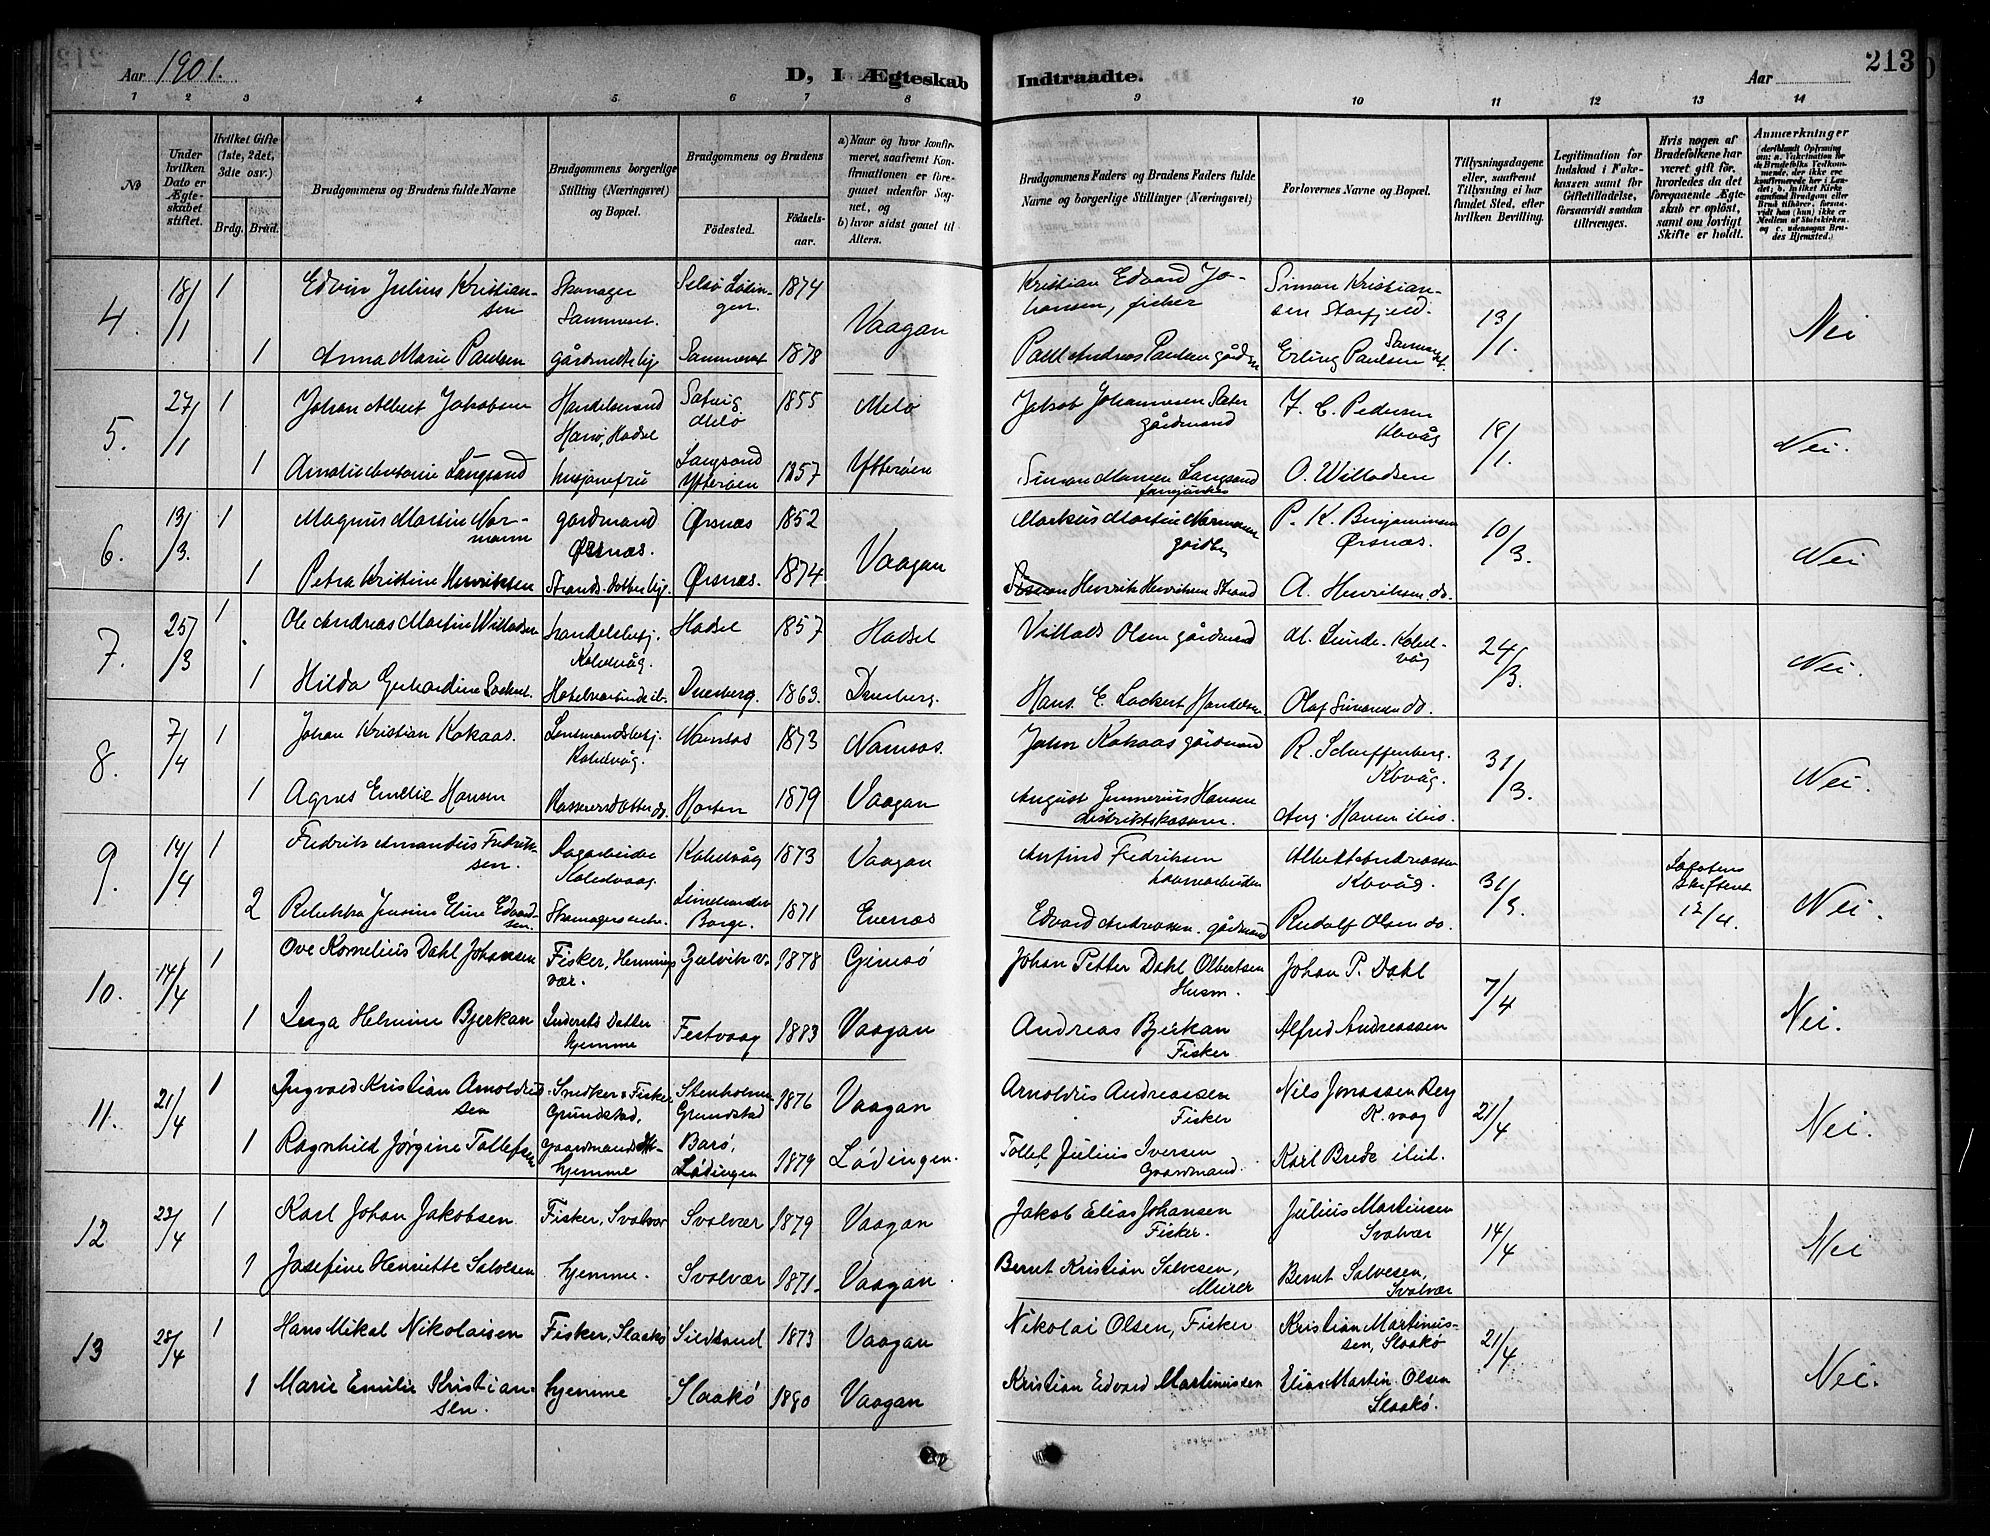 Aar 1901.
D, I Ægteskab Indtraadte.
Aar
213
1 2 3 4 5 6 7 8 9 10 11 12 13 14
No
Under hvilken Dato er Ægteskabet stiftet.
Hvilket Gifte (1ste, 2det, 3die osv.)
Brdg. Brud.
Brudgommens og Brudens fulde Navne
Brudgommens borgerlige Stilling (Næringsvei) og Bopæl.
Brudgommens og Brudens
Fødested.
Fødselsaar.
a) Naar og hvor konfirmeret, saafremt Konfirmationen er foregaaet udenfor Sognet, og
b) hvor sidst gaaet til Alters.
Brudgommens Faders og Brudens Faders fulde Navne og borgerlige Stillinger (Næringsvei)
Forlovernes Navne og Bopæl.
Tillysningsdagene eller, saafremt Tillysning ei har fundet Sted, efter hvilken Bevilling.
Legitimation for Indskud i Enkekassen samt for Giftetilladelse, forsaavidt saadan tiltrænges.
Hvis nogen af Brudefolkene har været gift før, hvorledes da det foregaaende Ægteskab er opløst, samt om lovligt Skifte er holdt.
Anmærkninger
4. 18/1 1 Edvin Julius Kristiansen Skomager 1874 Vaagan Kristian Edvard Johansen, fisker Simon Kristiansen Storfjeld. 13/1. Nei
1 Anna Marie Paulsen 1878 Paul Andreas Paulsen Erling Paulsen
5. 27/1 1 Johan Albert Jakobsen Handelsmand Hadsel Melø 1855 Melø Jakob Johannesen Sæter gårdmand Pedersen Kbvåg 18/1. Nei.
1 Langsand husjomfru Langsand Ytterøen 1857 Ytterøen Langsand O. Willadsen
6. 13/3. 1 Magnus Martin Normann gårdmand Ørsnæs. Ørsnæs 1852 Vaagan Markus Martin Normann P. K. Benjaminsen Ørsnæs. 10/3. Nei
1 Petra Kristine Henriksen Ørsnæs. 1874 Henrik Henriksen Strand A. Henriksen do.
7. 25/3 1 Ole Andreas Martin Willadsen handelsbetj. Kabelvåg. Hadsel 1857 Hadsel Villads Olsen gårdmand 24/3. Nei.
1 Hilda Gerhardine 1863. Hans E. Lockert Olaf Simonsen do.
8. 7/4 1 Johan Kristian Kokaas. Lensmandsbetj. Kabelvåg. Namsos 1873 Namsos. John Kokaas gårdmand R. Scharffenberg. Kbvåg. 31/3. Nei.
1 Agnes Emelie Hansen Horten 1879 Vaagan August Gunnerius Hansen distriktskasserer. Aug. Hansen ibid.
9. 14/4 1 Fredrik Amandus Fredriksen. Dagarbeider Kabelvaag. Kabelvåg 1873 Vaagan Arfind Fredriksen havnearbeider Albert Andreassen Kbvåg. 31/3. Lofotens skifteret 12/4. Nei.
2 Rebekka Jensine Eline Edvardsen. Borge. 1871 Evenæs Edvard Andreassen. gårdmand Rudolf Olsen do.
10. 14/4 1 Ove Kornelius Dahl Johansen Fisker, Henningsvær. 1878 Gimsø Johan Petter Dahl Olbertsen Husm. Johan P. Dahl 7/4 Nei.
1 Inga Helmine Bjerkan Indersts Datter hjemme Festvaag 1883 Vaagan Andreas Bjerkan Fisker Alfred Andreassen
11. 21/4 1 Ingvald Kristian Arnoldussen Snedker & Fisker, Grundstad, Stenholmen Grundstad 1876 Vaagan Arnoldus Andreassen Fisker Nils Jonassen Berg K.vaag 21/4 Nei.
1 Ragnhild Jørgine Tollefsen Gaardmandsdtr. hjemme Barø, Lødingen 1879 Lødingen. Tollef Julius Iversen Gaardmand. Karl Brede ibid.
12 22/4 1 Karl Johan Jakobsen. Fisker, Svolvær Svolvær 1879 Vaagan Jakob Elias Johansen Fisker. Julius Martinsen Svolvær 14/4 Nei
1 Josefine Henriette Salvesen hjemme. Svolvær 1871. Vaagan. Bernt Kristian Salvesen, Murer Bernt Salvesen, Svolvær
13 28/4 1 Hans Mikal Nikolaisen Fisker, Slaakø Sildsand 1873 Vaagan Nikolai Olsen, Fisker Kristian Martinussen, Slaakø 21/4 Nei.
1 Marie Emilie Kristiansen. hjemme Slaakø 1880 Vaagan Kristian Edvard Martinussen Elias Martin Olsen Slaakø.